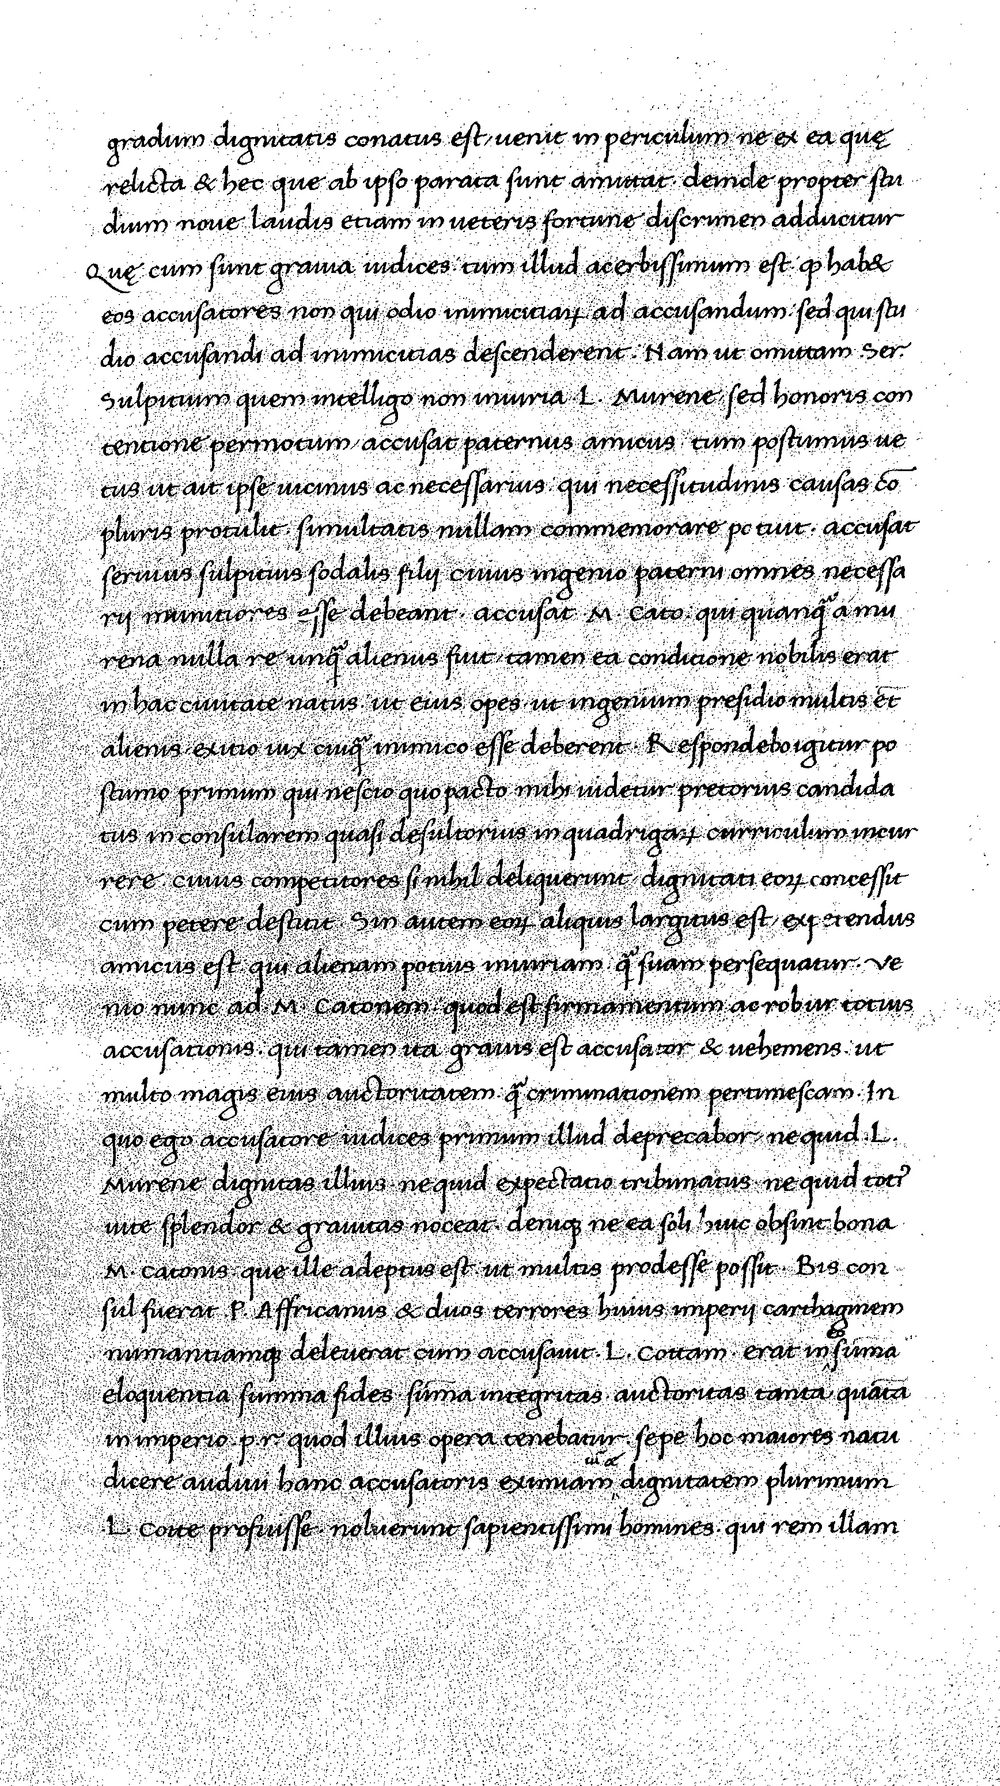 gradum dignitatis conatus est, uenit in periculum ne ex ea quę
relicta & hec que ab ipso parata sunt amittat. deinde propter stu
dium noue laudis etiam in ueteris fortune discrimen adducitur
Quę cum sunt grauia iudices. tum illud acerbissimum est. ꝙ hab&
eos accusatores non qui odio inimicitiaꝝ ad accusandum. sed qui stu
dio accusandi ad inimicitias descenderent. Nam ut omittam Ser.
Sulpitium quem intelligo non iniuria L. Murene, sed honoris con
tentione permotum, accusat paternus amicus tum postumus ue
tus ut ait ipse uicinus ac necessarius. qui necessitudinis causas cō
pluris protulit. simultatis nullam commemorare potuit. accusat
seruius sulpitius sodalis filij cuius ingenio paterni omnes necessa
rij munitiores esse debeant. accusat M. Cato. qui quanq̃ a mu
rena nulla re unq̃ alienus fuit, tamen ea condicione nobilis erat
in hac ciuitate natus. ut eius opes. ut ingenium presidio multis et̄
alienis. exitio uix cuiq̃ inimico esse deberent. Respondebo igitur po
stumo primum qui nescio quo pacto mihi uidetur pretorius candida
tus in consularem quasi desultorius in quadrigaꝝ curriculum incur
rere. cuius competitores si nihil deliquerunt, dignitati eoꝝ concessit
cum petere destitit. Sin autem eoꝝ aliquis largitus est, expetendus
amicus est. qui alienam potius iniuriam. q̃ suam persequatur. Ve
nio nunc ad M. Catonem. quod est firmamentum ac robur totius
accusationis. qui tamen ita grauis est accusator & uehemens. ut
multo magis eius auctoritatem. q̃ criminationem pertimescam. In
quo ego accusatore iudices primum illud deprecabor, ne quid .L.
Murene dignitas illius. ne quid expectatio tribunatus. ne quid toti᾿
uite splendor & grauitas noceat. deniqꝫ ne ea soli huic obsint bona
M. Catonis. que ille adeptus est ut multis prodesse possit. Bis con
sul fuerat .P. Affricanus & duos terrores huius imperij carthaginem
numantiamqꝫ deleuerat cum accusauit .L. Cottam. erat in eo sūma
eloquentia summa fides. sūma integritas. auctoritas tanta quāta
in imperio .p.r. quod illius opera tenebatur. sepe hoc maiores natu
dicere audiui hanc accusatoris eximiam dignitatem plurimum
L. Cotte profuisse. noluerunt sapientissimi homines. qui rem illam